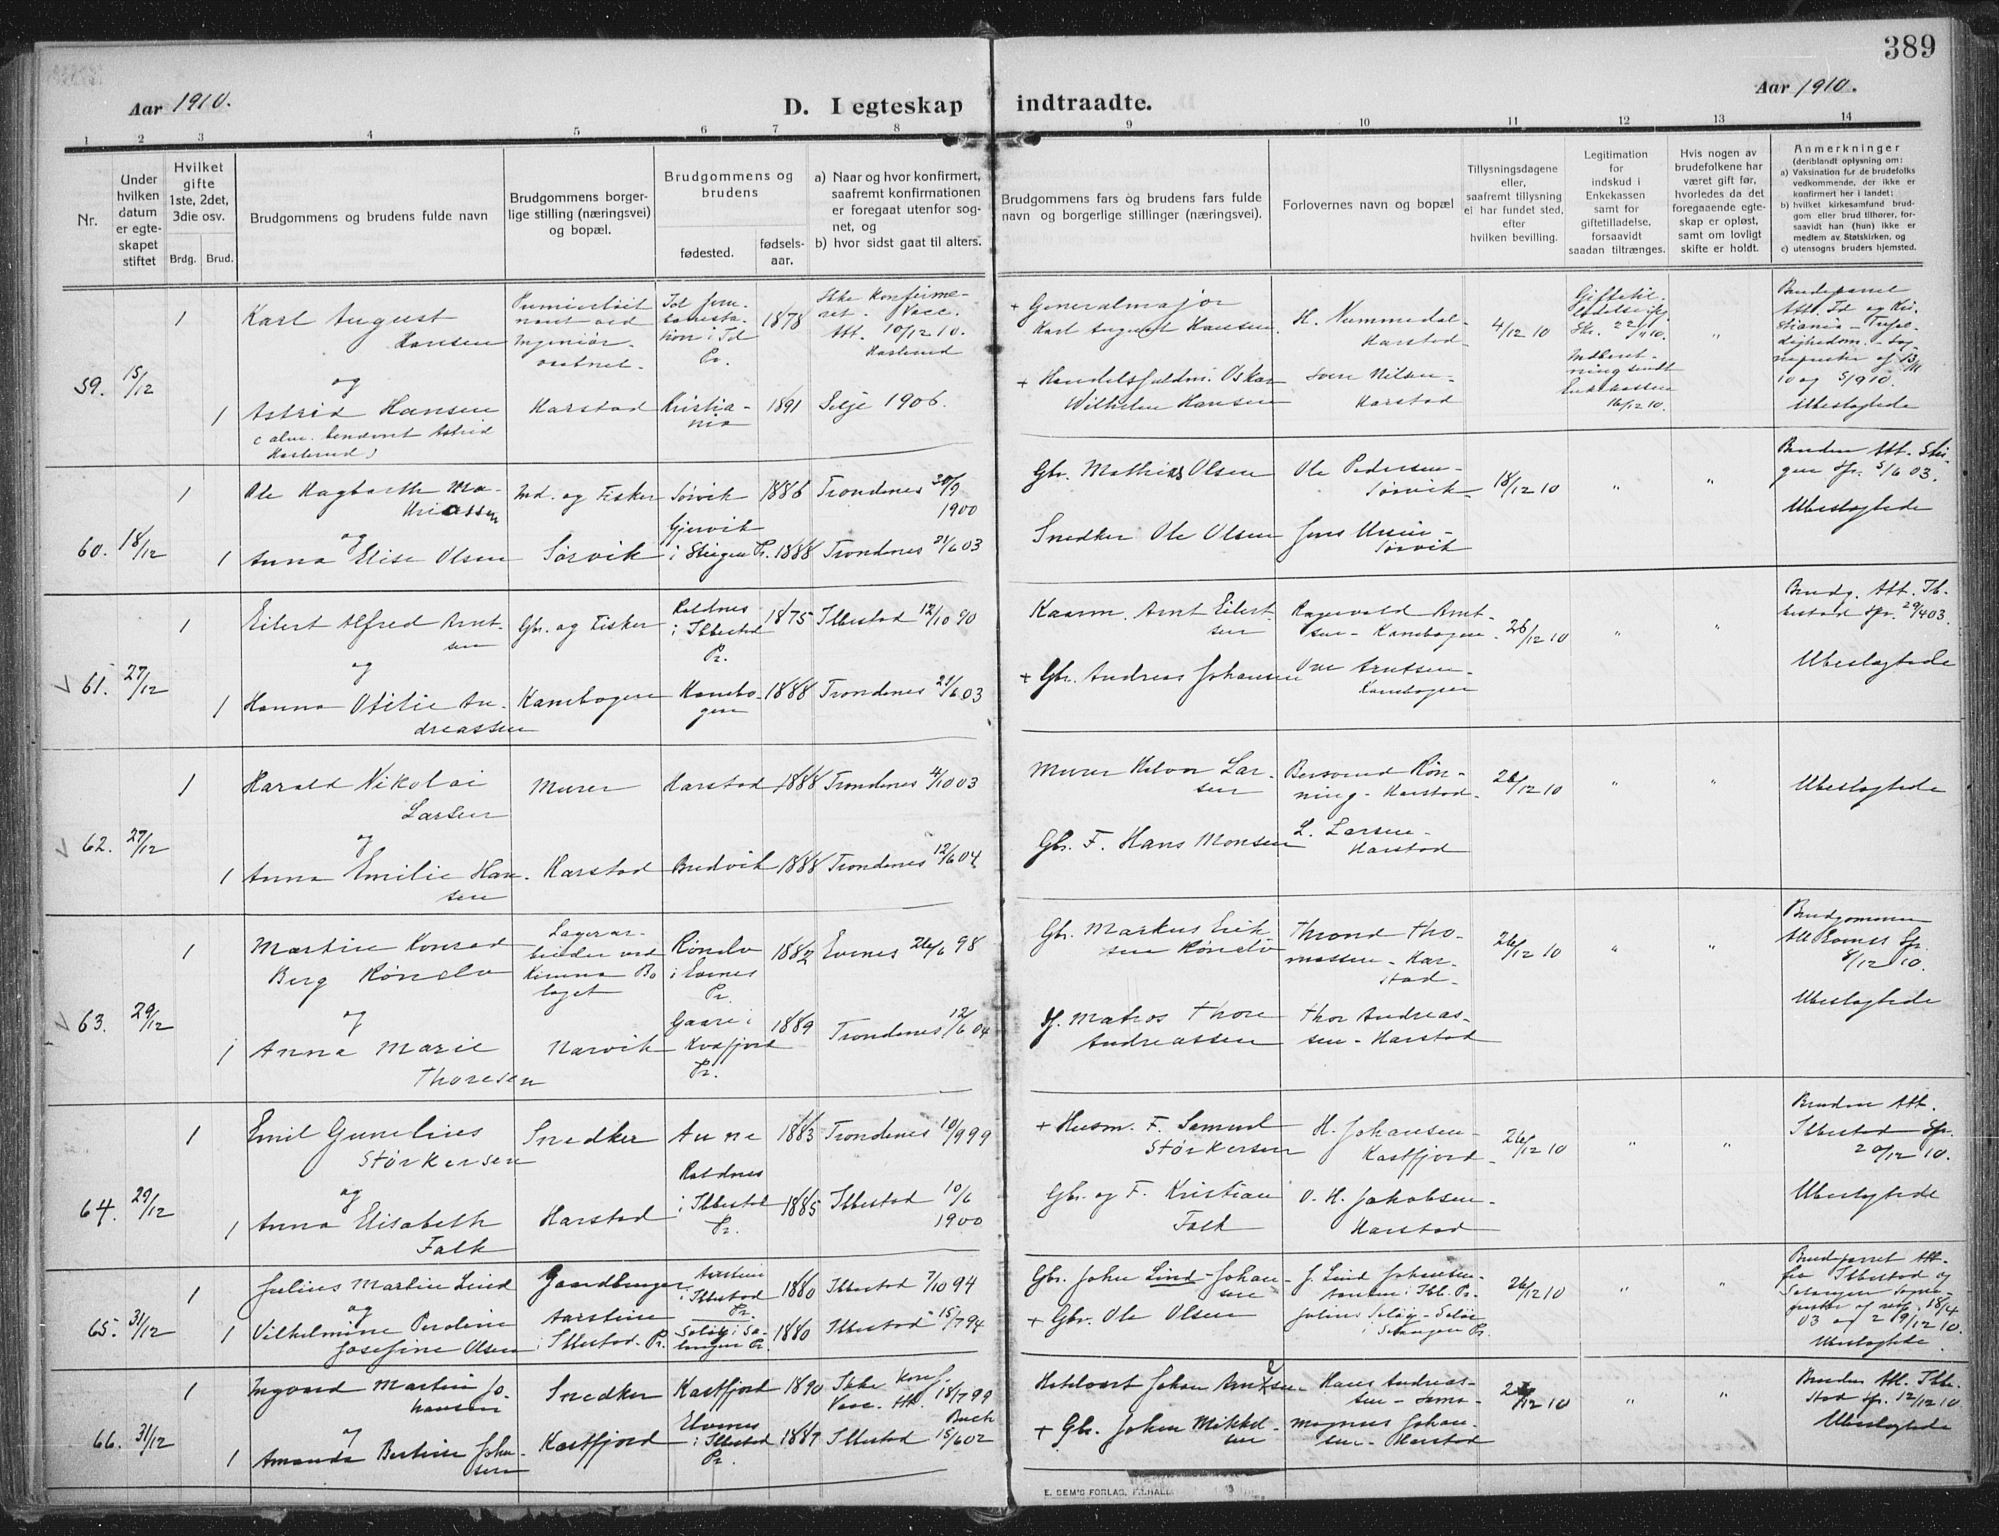 389
Aar 1910.
D. I egteskap indtraadte.
Aar 1910.
1 2 3 4 5 6 7 8 9 10 11 12 13 14
Nr.
Under hvilken datum er egte-skapet stiftet
Hvilket gifte 1ste, 2det, 3die osv.
Brdg. Brud.
Brudgommens og brudens fulde navn
Brudgommens borger-lige stilling (næringsvei) og bopæl.
Brudgommens og brudens
fødested.
fødsels-aar.
a) Naar og hvor konfirmert, saafremt konfirmationen er foregaat utenfor sog-net, og
b) hvor sidst gaat til alters.
Brudgommens fars og brudens fars fulde navn og borgerlige stillinger (næringsvei).
Forlovernes navn og bopæl
Tillysningsdagene eller, saafremt tillysning ei har fundet sted, efter hvilken bevilling.
Legitimation for indskud i Enkekassen samt for giftetilladelse, forsaavidt saadan tiltrænges.
Hvis nogen av brudefolkene har været gift før, hvorledes da det foregaaende egte-skap er opløst, samt om lovligt skifte er holdt.
Anmerkninger
(deriblandt oplysning om:
a) Vaksination for de brudefolks vedkommende, der ikke er konfirmert her i landet;
b) hvilket kirkesamfund brud-gom eller brud tilhører, for-saavidt han (hun) ikke er medlem av Statskirken, og
c) utensogns bruders hjemsted.
59. 15/12
1 Karl August Hansen
Premierløit-nant ved Ingeniør-
1878
Ikke konfirme-ret. Vacc. Att. 10/12 10.
+ Generalmajor Karl August Hansen
H. Nummedal - Harstad
4/12 10
Giftetil-ladelse
"
og
1 Astrid Hansen
(alm. benævnt Astrid
Harstad
Kristia-nia
1891
Selje 1906.
+ Handelsfuldm. Oskar Wilhelm Hansen
Harstad
16/12 10.
Ubeslægtede
60. 18/12
1 Ole Hagbarth Ma-
Ind. og Fisker
Sørvik
1886
Trondenes 30/9 1900
Gbr. Mathias Olsen
Ole Pedersen - Sørvik
18/12 10
" "
Bruden Att. Stei-gen Spr. 5/6 03.
og
1 Anna Elise Olsen
Sørvik
i Steigen Pr.
1888
Trondenes 21/6 03
Snedker Ole Olsen
Sørvik
Ubeslægtede
61. 27/12
1 Eilert Alfred Arnt-sen
Gbr. og Fisker
Roldnes i Ibbestad Pr.
1875
Ibbestad 12/10 90
Kaarm. Arnt Eilert-sen
Ragnvald Arnt-sen - Kanebogen
26/12 10
" "
Brudg. Att. Ib-bestad Spr. 29/4 03.
og
1 Hanna Otilie An-dreassen
Kanebogen
Kanebo-gen
1888
Trondenes 21/6 03
+ Gbr. Andreas Johansen
Ove Arntsen - Kanebogen
Ubeslægtede
62. 27/12
1 Harald Nikolai Larsen
Murer
Harstad
1888
Trondenes 4/10 03
Murer Halvor Lar-sen
Røn-ning - Harstad
26/12 10
" "
Ubeslægtede
og
1 Anna Emilie Han-sen
Harstad
Bredvik
1888
Trondenes 12/6 04
Gbr. F. Hans Monsen
L. Larsen - Harstad
63. 29/12
1 Martin Konrad Berg Rønelv
Lagerar-beider ved Kiruna Bo-laget
Rønelv i Evenes Pr.
1882
Evenes 26/6 98
Gbr. Markus Erik-sen Rønelv
Thrond Tho-massen - Har-stad
26/12 10
" "
Brudgommen Att. Spr. 8/12 10.
og
1 Anna Marie Thoresen
Narvik
Gaare i Kvæfjord Pr.
1889
Trondenes 12/6 04
Matros Thore Andreassen
Thor Andreas-sen - Harstad
Ubeslægtede
64. 29/12
1 Emil Gunelius Størkersen
Snedker
Aune
1883
Trondenes 10/9 99
+ Husm. F. Samuel Størkersen
H. Johansen - Kastfjord
26/12 10
" "
Bruden Att. Ibbestad Spr. 20/12 10.
og
1 Anna Elisabeth Falk
Harstad
Roldnes i Ibbestad Pr.
1885
Ibbestad 10/6 1900
Gbr. og F. Kristian Falk
O. H. Jakobsen - Harstad
Ubeslægtede
65. 31/12
1 Julius Martin Lind
Gaardbruger
Aarstein i Ibbestad Pr.
1880
Ibbestad 7/10 94
Gbr. Johan Lind Johan-sen
J. Lind Johansen -
26/12 10
" "
Brudparret Att. fra Ibbestad og Salangen
og
1 Vilhelmine Peroline Josefine Olsen
Aarstein i Ibbestad Pr.
Seløy i Sa-langen Pr.
1880
Ibbestad 15/7 94
+ Gbr. Ole Olsen
Julius Seløy - Seløy i Salangen Pr.
Ubeslægtede
66. 31/12
1 Ingvard Martin Jo-hansen
Snedker
Kastfjord
1890
Ikke konf. Vacc. Att. 18/7 99
Johan Arntsen
Hans Andreas-sen - Sama-
12 10
"
Bruden Att. Ibbe-stad Spr. 12/12 10.
og
1 Amanda Bertine Johan-sen
Kastfjord
Elvenes i Ibbestad Pr.
1887
Ibbestad 15/6 02
+ Gbr. Johan Mikkel-sen
Magnus Johan-sen - Harstad
Ubeslægtede
E. SEM'S FORLAG, F.HALD